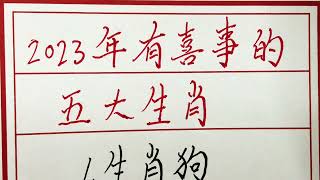 2023年有喜事的
五大生肖
1生肖狗